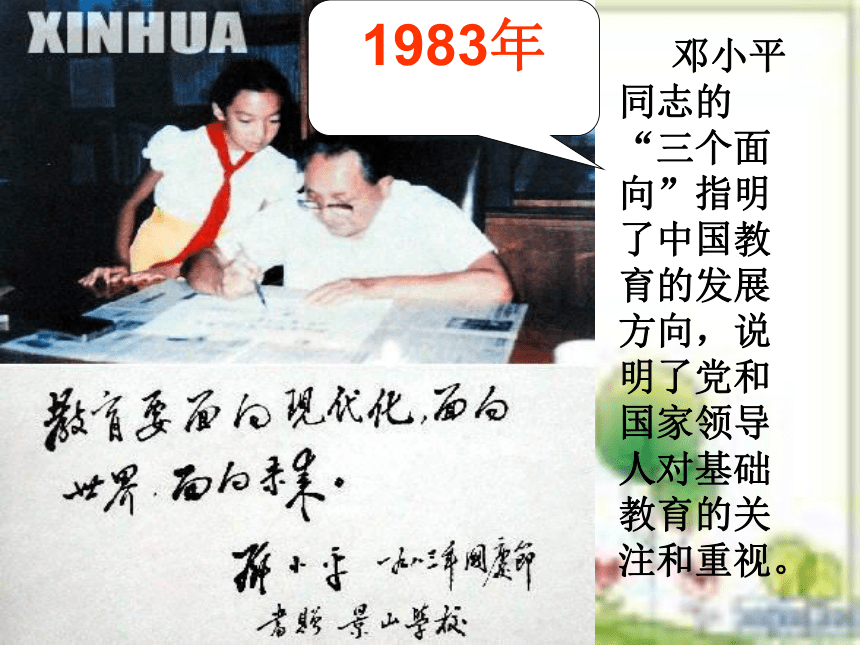 XINHUA
1983年
邓小平
同志的
“三个面
向”指明
了中国教
育的发展
方向，说
明了党和
国家领导
人对基础
教育的关
注和重视。
教育要面向现代化，面向
世界，面向未来。
邓小平 一九八三年國庆節
書贈 景山學校